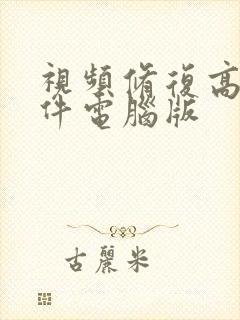 視頻脩復高
件電腦版
古麗米